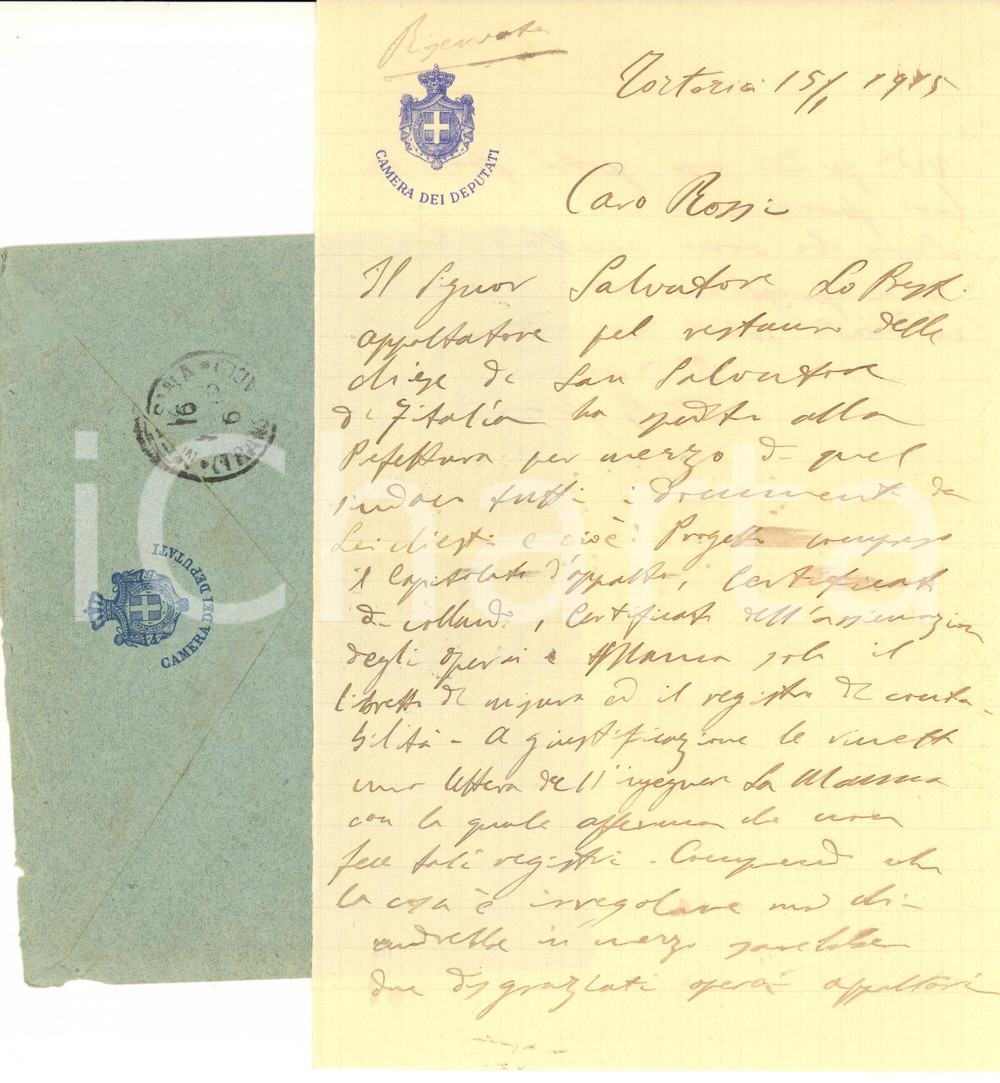 Riservata
CAMERA DEI DEPUTATI
Tortorici 15/1 1915
Caro Rossi
Il Signor Salvatore Lo Presti
appaltatore pel restauro delle
chiese di San Salvatore
di Fitalia ha spedito alla
Prefettura per mezzo di quel
sindaco tutti i documenti da
Lei chiesti e cioè: Progetto compreso
il Capitolato d'appalto, Certificati
di collaudo, Certificati dell'assicurazione
degli operai e Manca solo il
libretto di misura ed il registro di conta-
bilità - A giustificazione le rimetto
una lettera dell'ingegner La Manna
con la quale afferma che non
fece tali registri - Comprendo che
la cosa è irregolare ma chi
andrebbe in mezzo sarebbero
due disgraziati operai appaltatori
CAMERA DEI DEPUTATI
iCharta